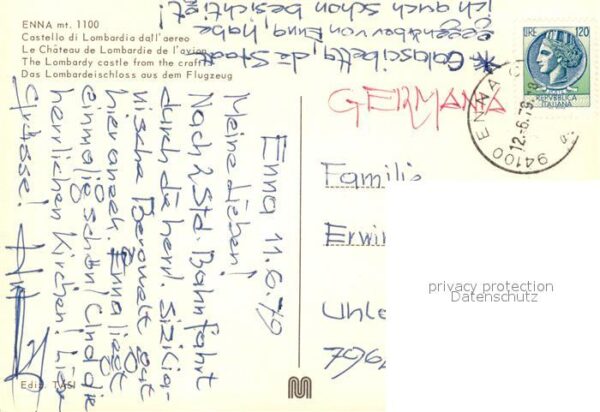 ENNA mt. 1100
Castello di Lombardia dall'aereo
Le Château de Lombardie de l'avion
The Lombardy castle from the craft
Das Lombardeischloss aus dem Flugzeug
* Calascibetta, die Stadt
gegenüber von Enna, habe
ich auch schon besichtigt!
LIRE 120
REPUBBLICA
ITALIANA
94100 ENNA
12.-6.79
GERMANIA
Enna 11.6.79
Meine Lieben!
Nach 2 Std. Bahnfahrt
durch die herrl. Sizilia-
nische Bergwelt gut
hier angek. Enna liegt
einmalig schön! Und die
herrlichen Kirchen! Liebe
Grüsse!
Familie
Erwin
Uhle
Ediz. TVSI
privacy protection
Datenschutz